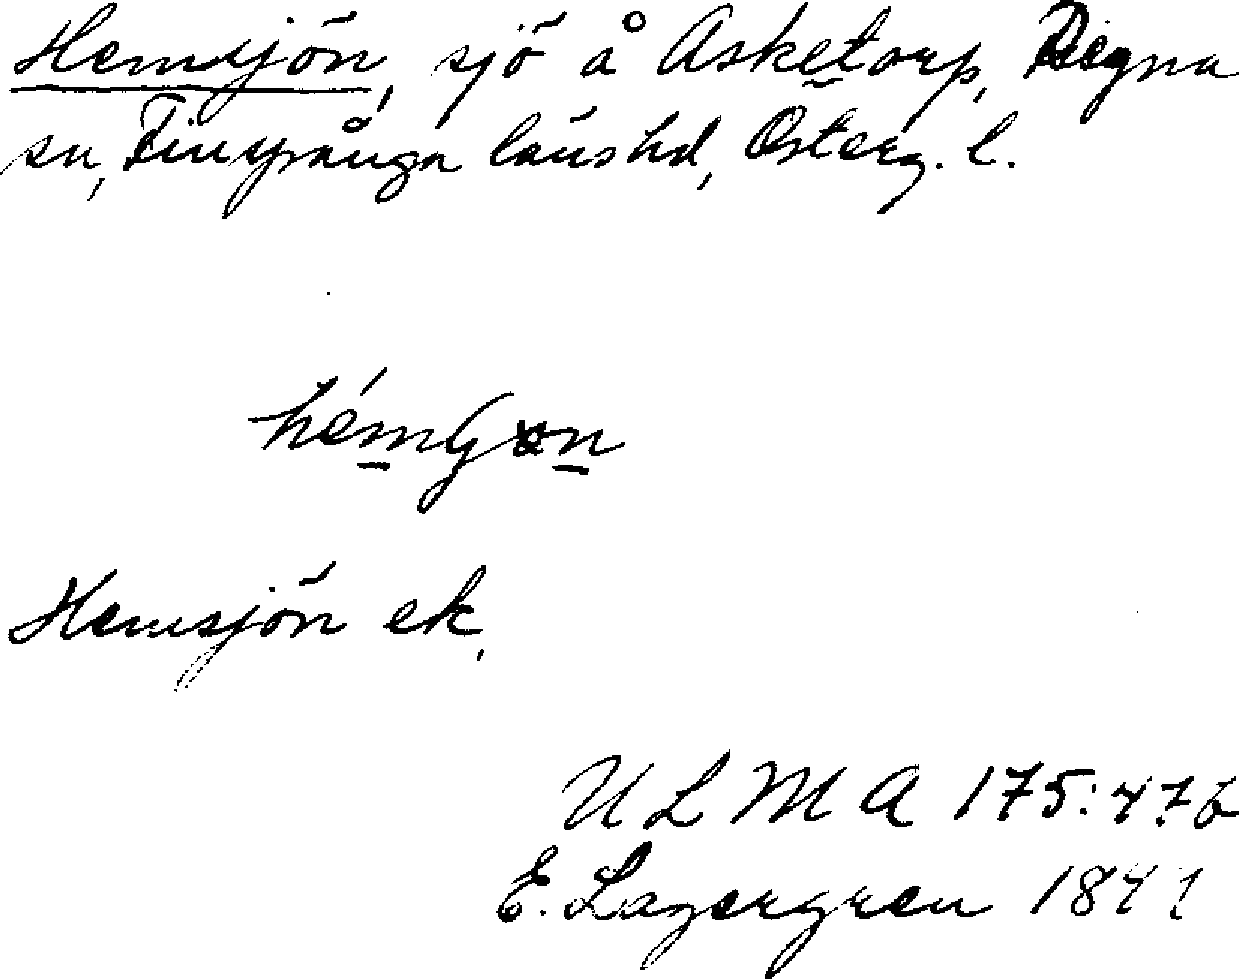 Hemsjön, sjö å Asketorp, Regna
sn, Finspånga länshd, Österg. l.
Hemsjön ek,
ULMA 175:47b
E. Lagergren